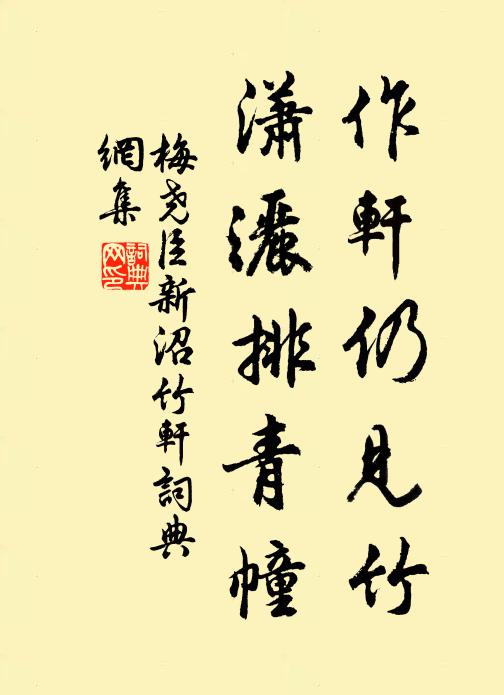 作軒仍見竹
瀟灑排青幢
梅堯臣新沼竹軒詞典
網集
詞典網印